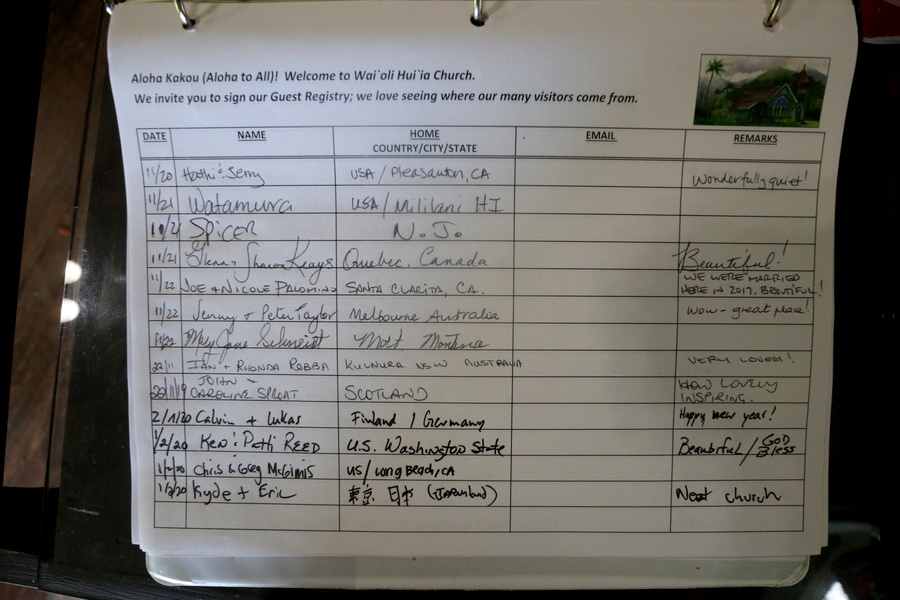 Aloha Kakou (Aloha to All)! Welcome to Wai`oli Hui`ia Church.
We invite you to sign our Guest Registry; we love seeing where our many visitors come from.
DATE NAME HOME COUNTRY/CITY/STATE EMAIL REMARKS
11/20 & Jerry USA / Pleasanton, CA Wonderfully quiet!
11/21 Watamura USA / Mililani HI
Spicer N.J.
11/21 Glenn + Sharon Keays Quebec, Canada Beautiful!
11/22 Joe & Nicole Palomino SANTA CLARITA, CA. WE WERE MARRIED HERE IN 2017. BEAUTIFUL!
11/22 Jenny & Peter Taylor Melbourne Australia Wow - great place!
11/22 Mary Jane Montana
22/11 IAN + RHONDA ROBBA KULNURA NSW AUSTRALIA VERY LOVED!
JOHN CAROLINE SPROAT SCOTLAND HOW LOVELY INSPIRING.
2/1/20 Calvin + Lukas Finland / Germany Happy new year!
1/2/20 Ken & Patti REED U.S. Washington State Beautiful / GOD Bless
1/2/20 Chris & Greg McGinnis US / Long Beach, CA
1/2/20 Kyde + Eric 東京 日本 Neat church